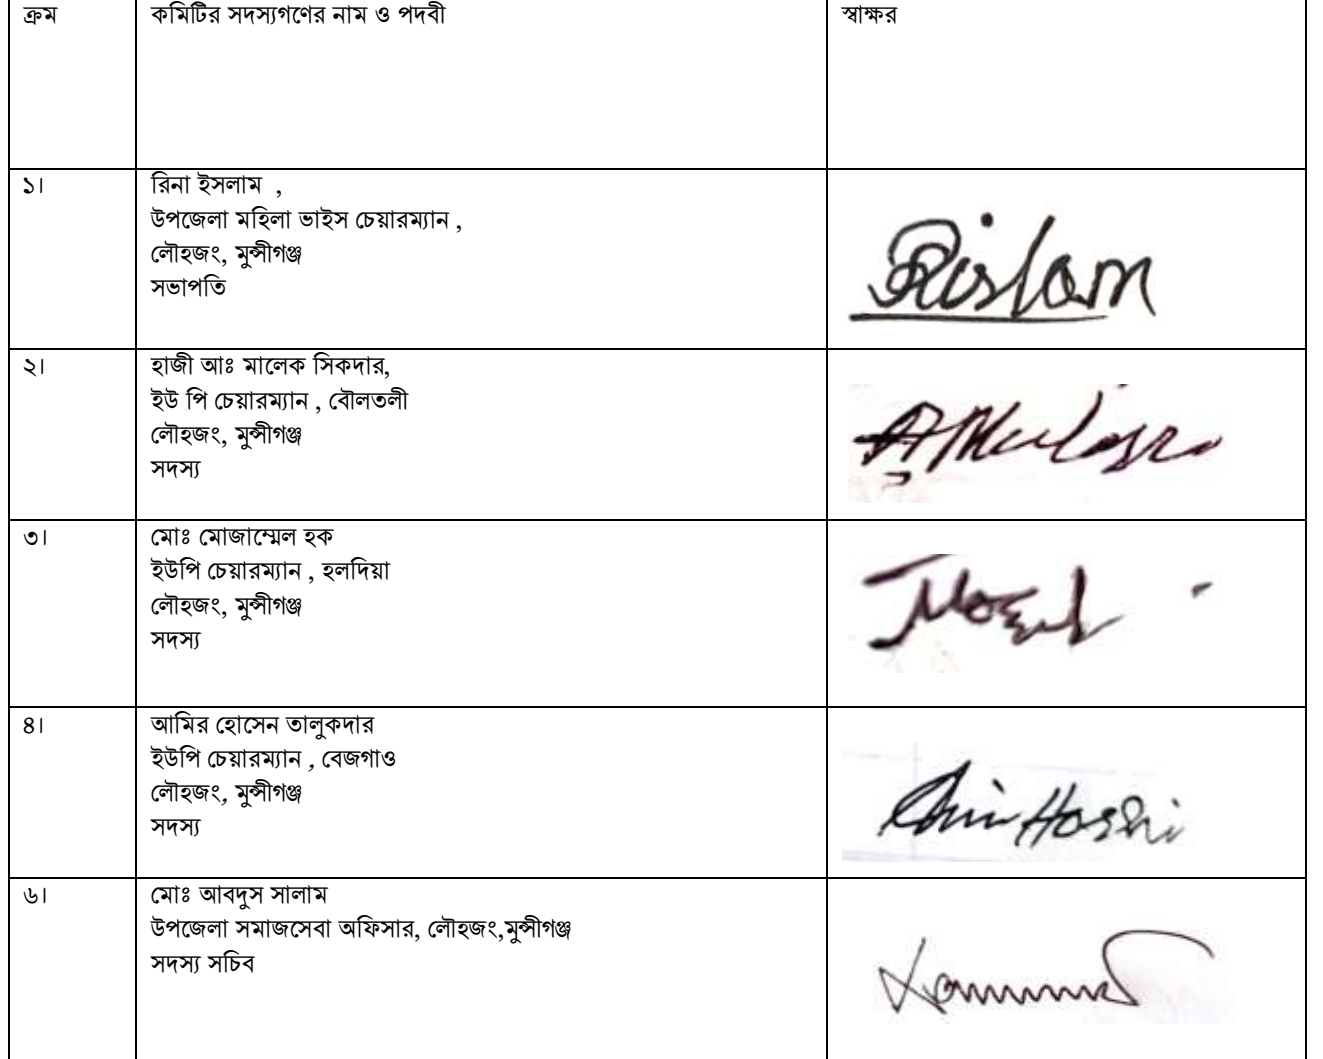 ক্রম
কমিটির সদস্যগণের নাম ও পদবী
স্বাক্ষর
১।
রিনা ইসলাম ,
উপজেলা মহিলা ভাইস চেয়ারম্যান ,
লৌহজং, মুন্সীগঞ্জ
সভাপতি
RIslam
২।
হাজী আঃ মালেক সিকদার,
ইউ পি চেয়ারম্যান , বৌলতলী
লৌহজং, মুন্সীগঞ্জ
সদস্য
৩।
মোঃ মোজাম্মেল হক
ইউপি চেয়ারম্যান , হলদিয়া
লৌহজং, মুন্সীগঞ্জ
সদস্য
৪।
আমির হোসেন তালুকদার
ইউপি চেয়ারম্যান , বেজগাও
লৌহজং, মুন্সীগঞ্জ
সদস্য
৬।
মোঃ আবদুস সালাম
উপজেলা সমাজসেবা অফিসার, লৌহজং,মুন্সীগঞ্জ
সদস্য সচিব